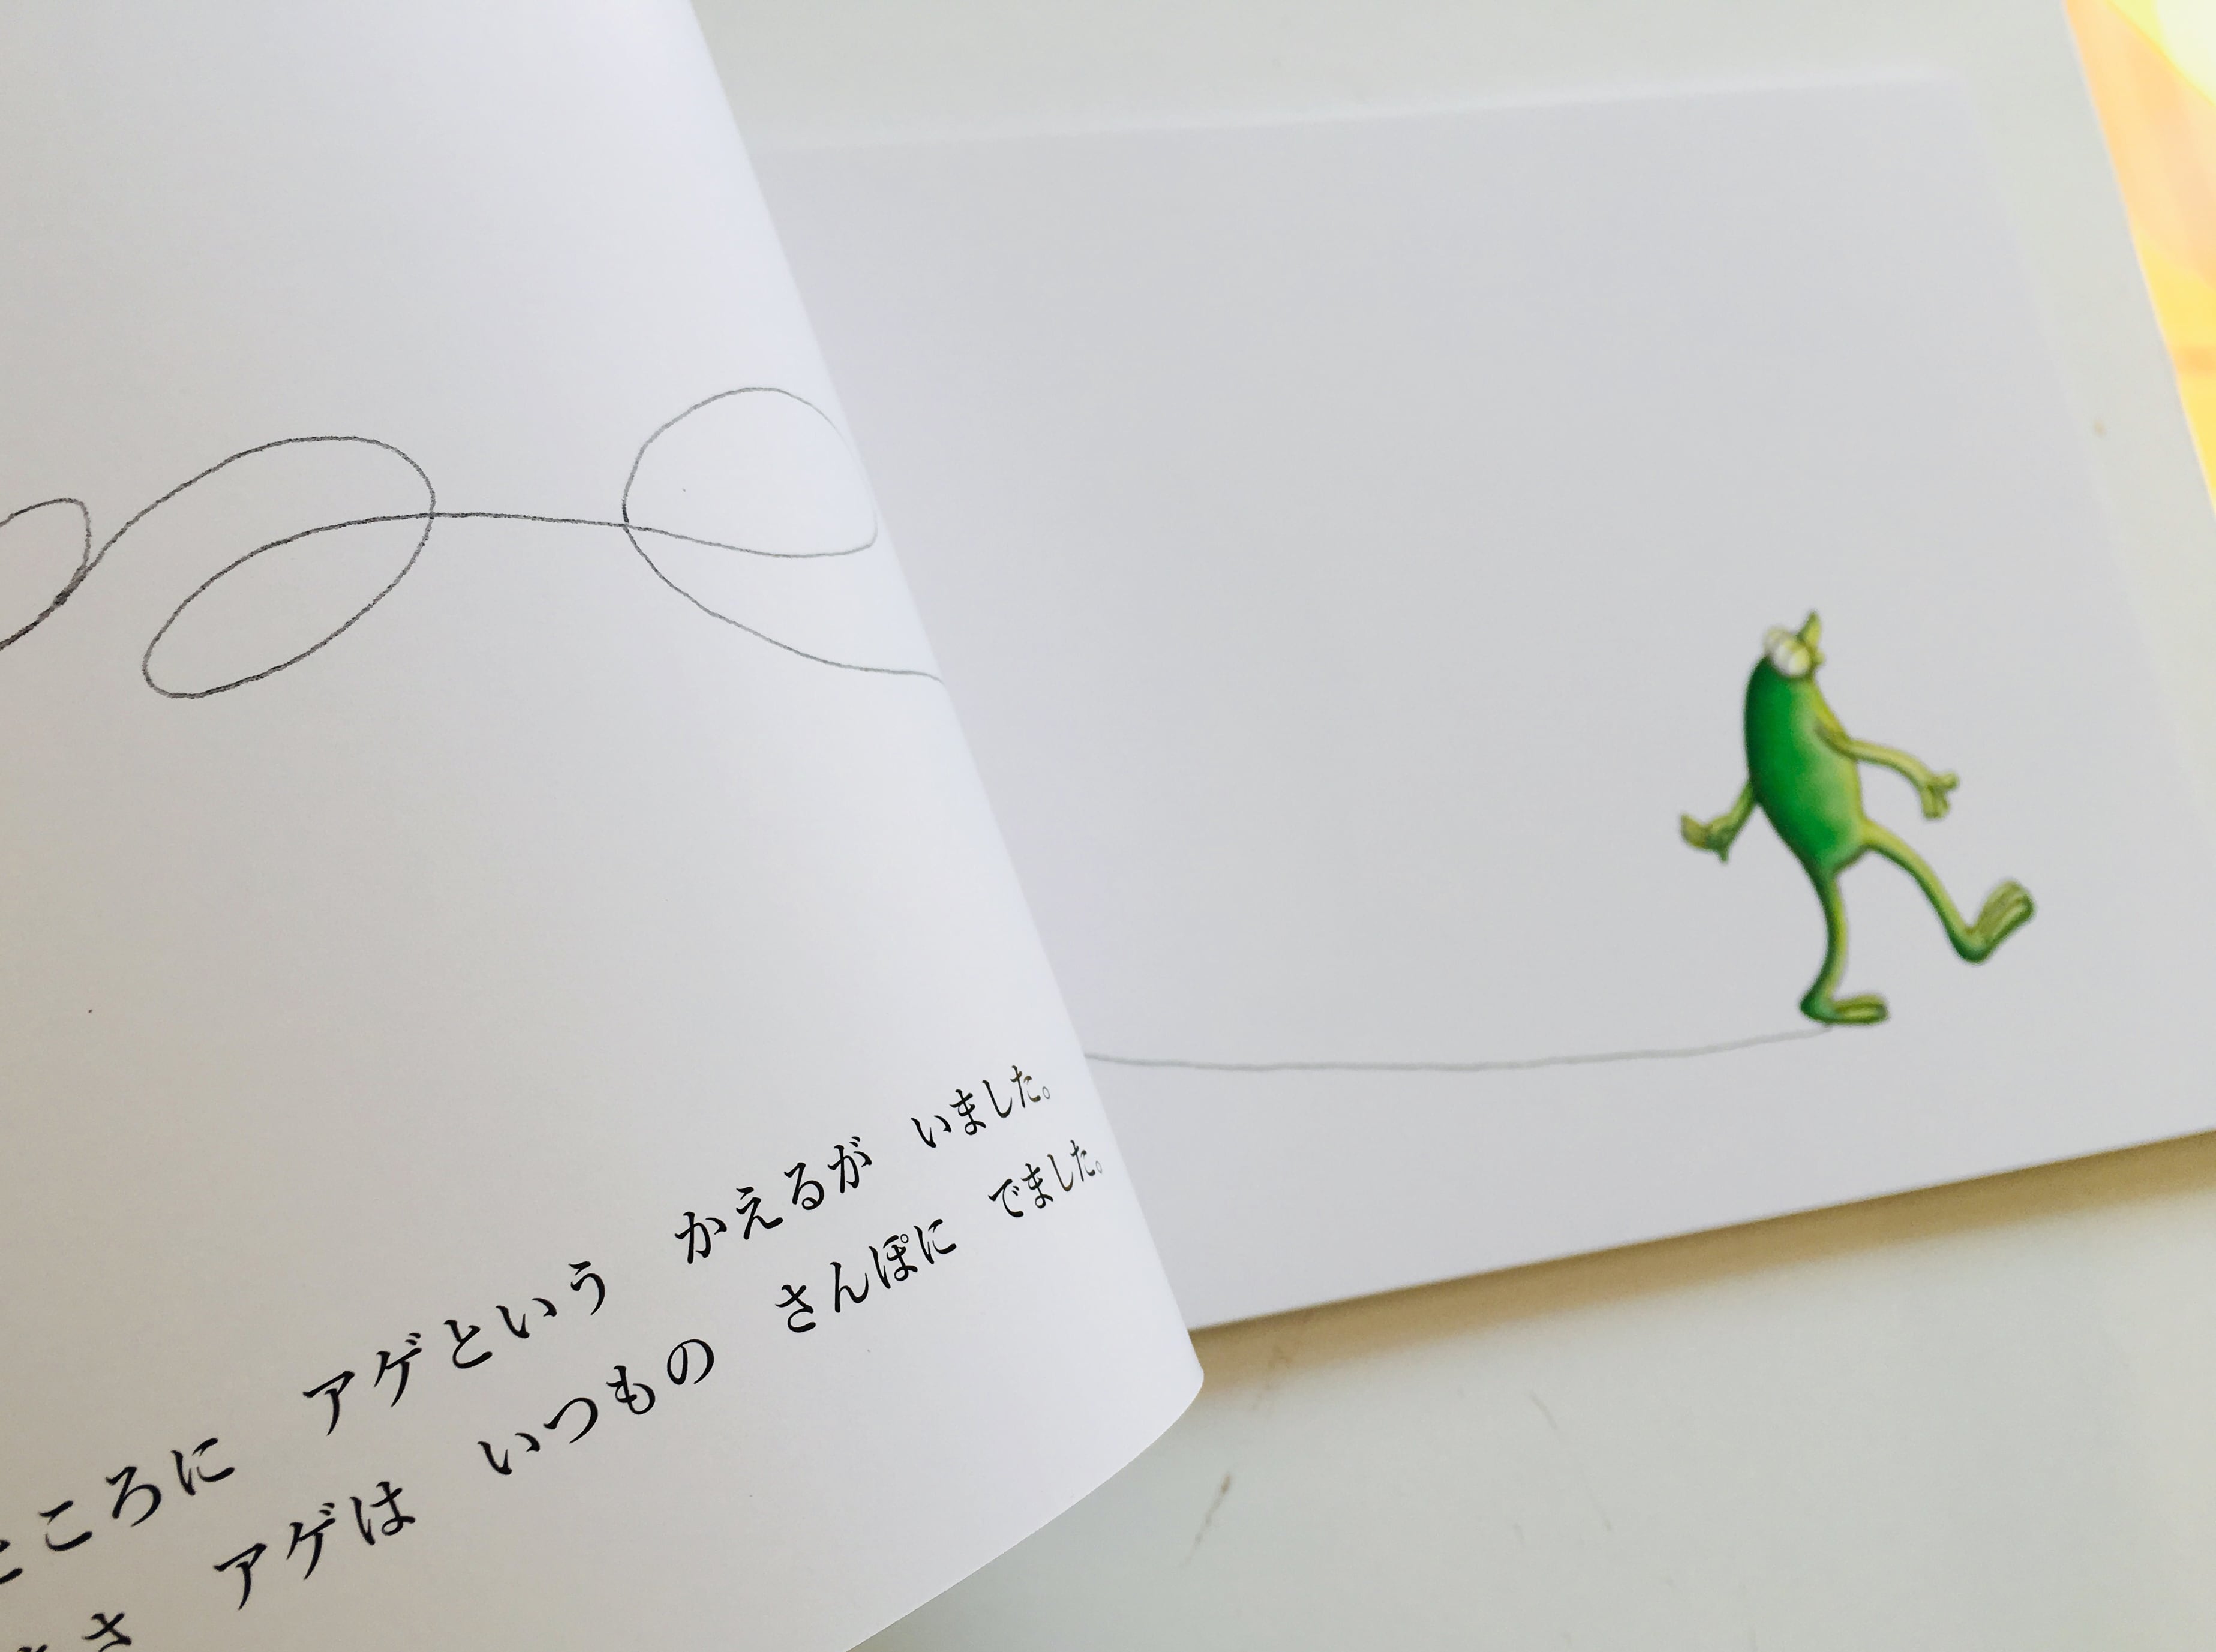 ところに　アゲという　かえるが　いました。
アゲは　いつもの　さんぽに　でました。